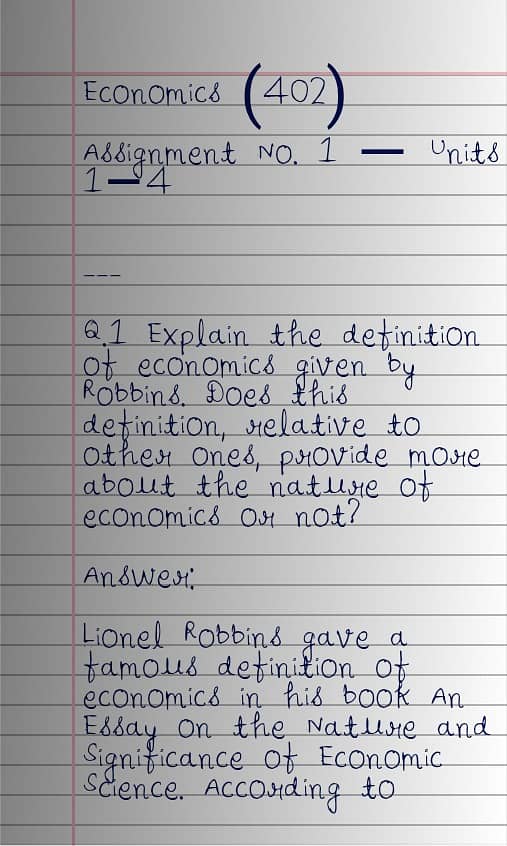 Economics (402)
Assignment No. 1 — Units
1–4
---
Q.1 Explain the definition
of economics given by
Robbins. Does this
definition, relative to
other ones, provide more
about the nature of
economics or not?
Answer:
Lionel Robbins gave a
famous definition of
economics in his book An
Essay on the Nature and
Significance of Economic
Science. According to